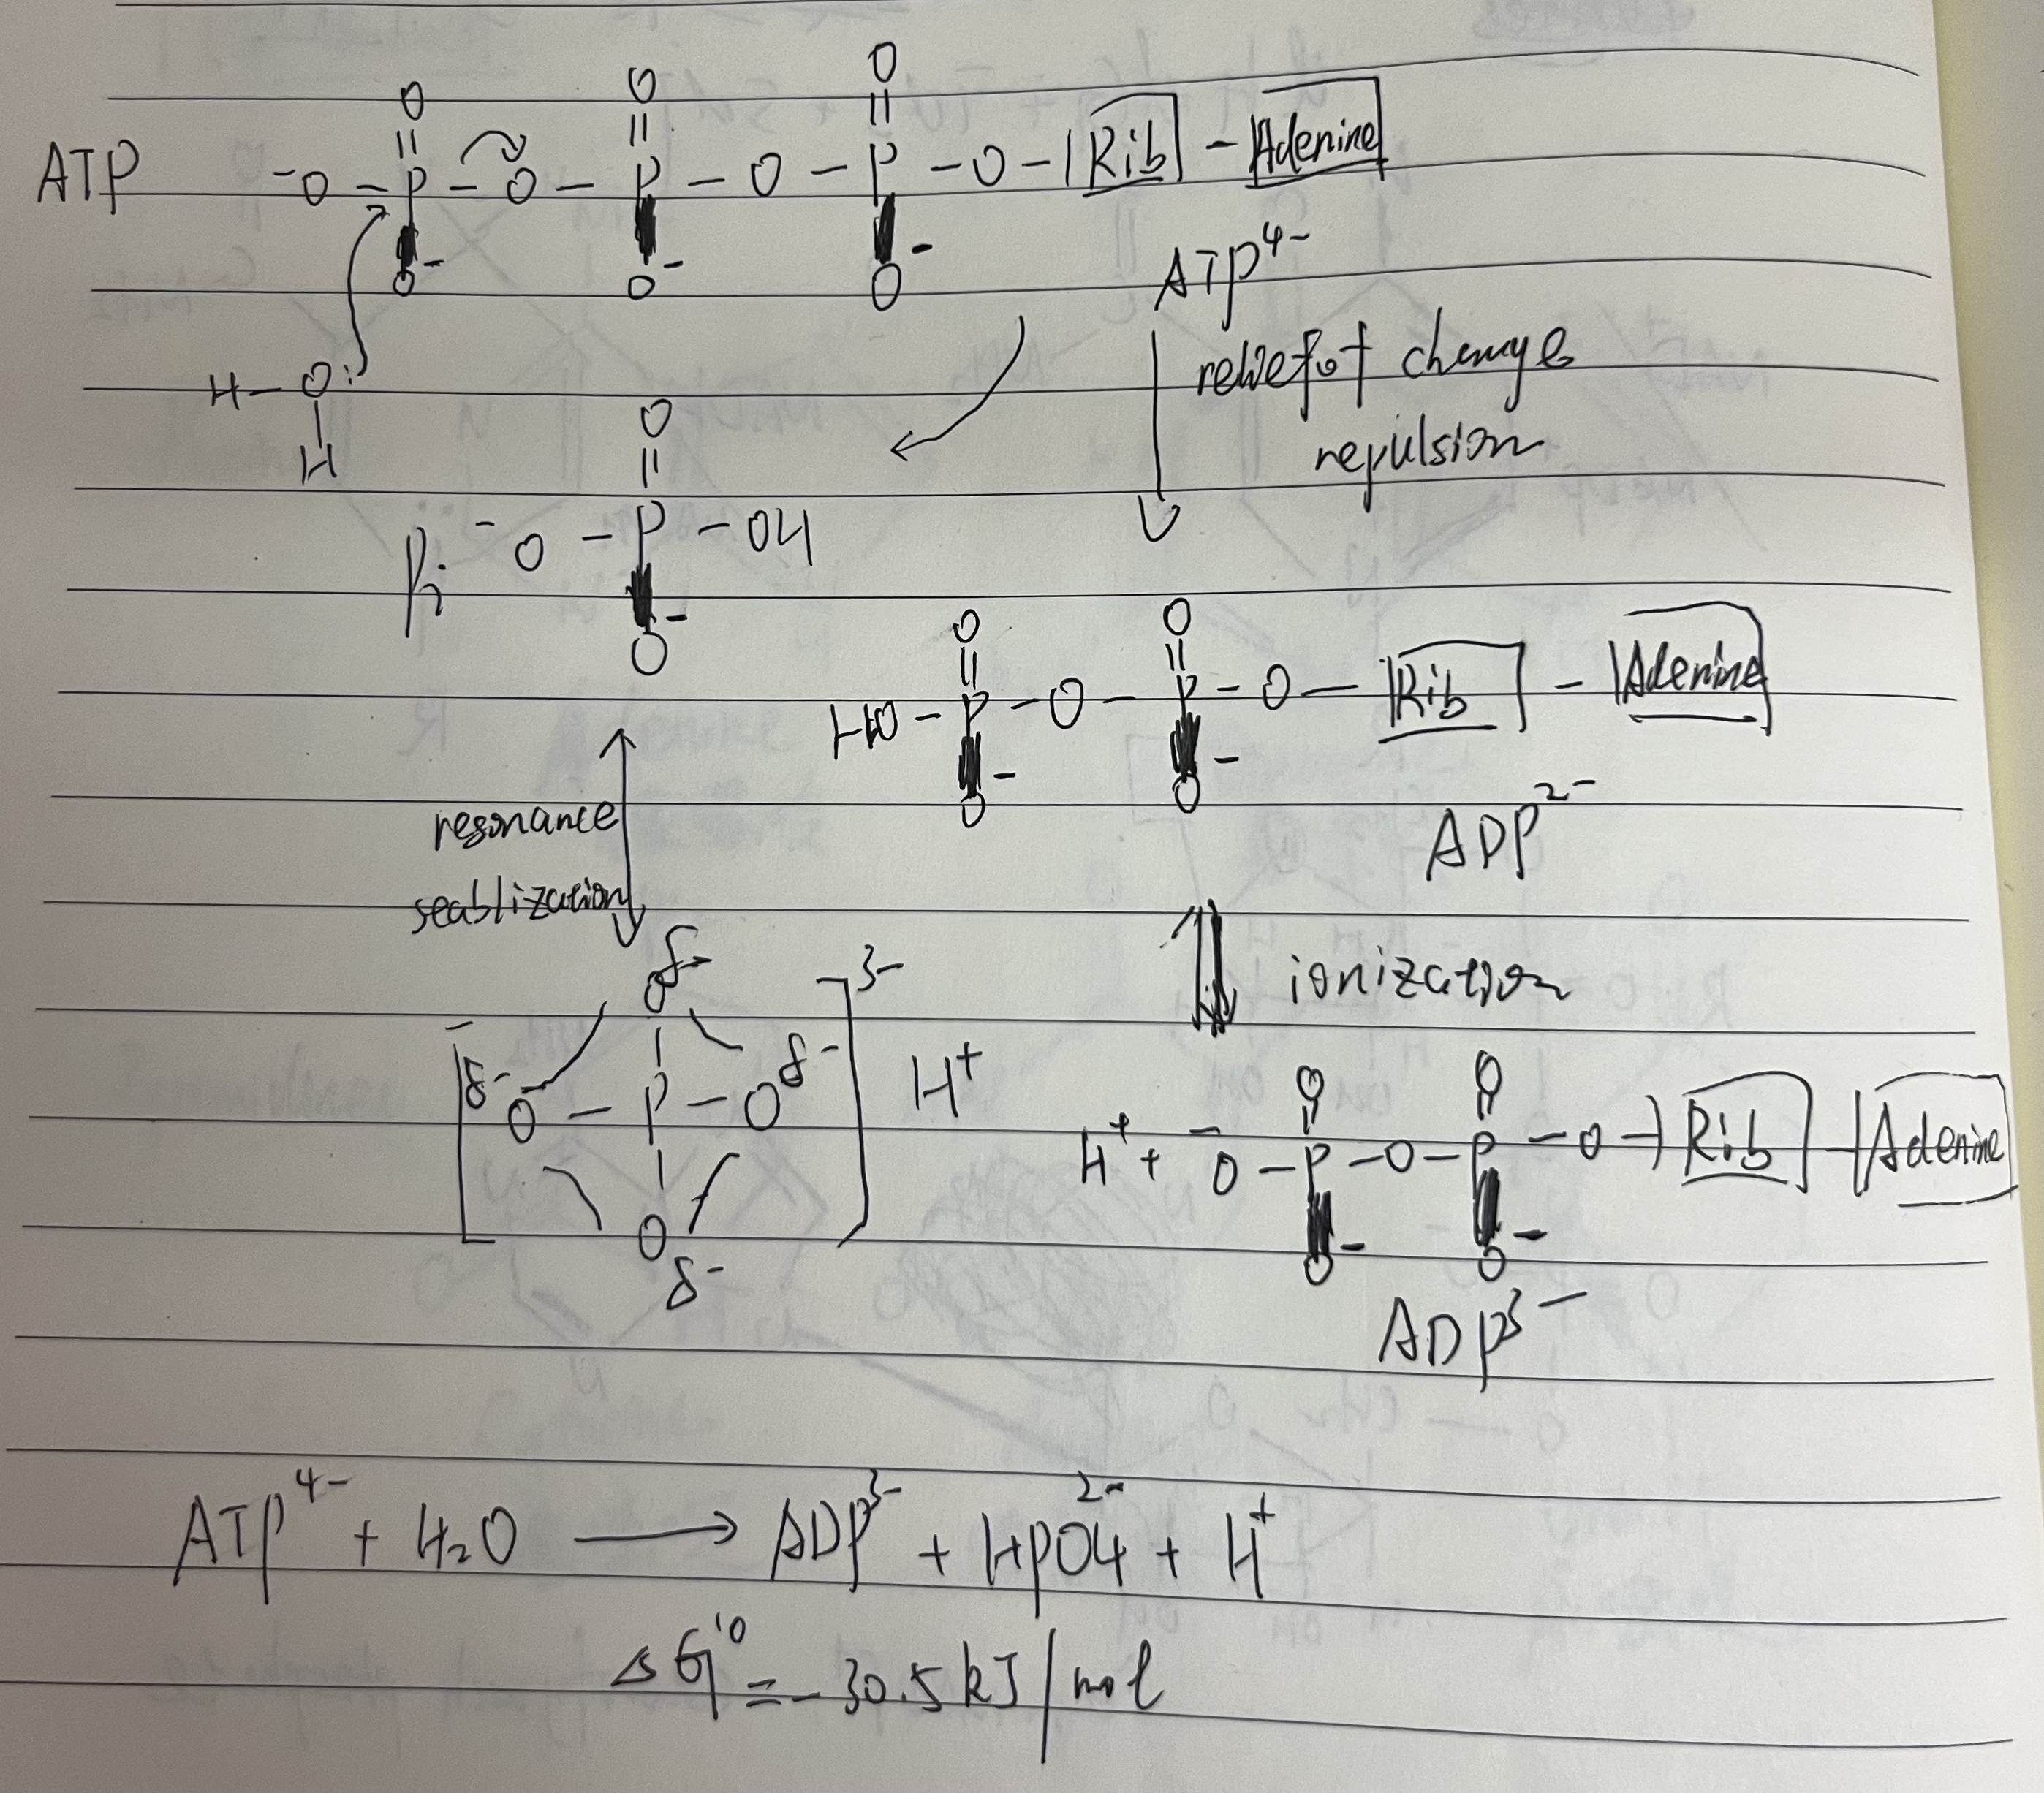 O O O
ATP ⁻O – P – O – P – O – P – O – Rib – Adenine
O⁻ O⁻ O⁻
ATP⁴⁻
H – O:
H
relief of charge
repulsion
O
Pi ⁻O – P – OH
O⁻
O O
HO – P – O – P – O – Rib – Adenine
O⁻ O⁻
ADP²⁻
resonance
seablization
ionization
Oδ⁻ ]³⁻
[δ⁻O – P – Oδ⁻ H⁺
O
δ⁻
O O
H⁺ + ⁻O – P – O – P – O – Rib – Adenine
O⁻ O⁻
ADP³⁻
ATP⁴⁻ + H₂O ⟶ ADP³⁻ + HPO4²⁻ + H⁺
ΔG'⁰ = -30.5 kJ/mol